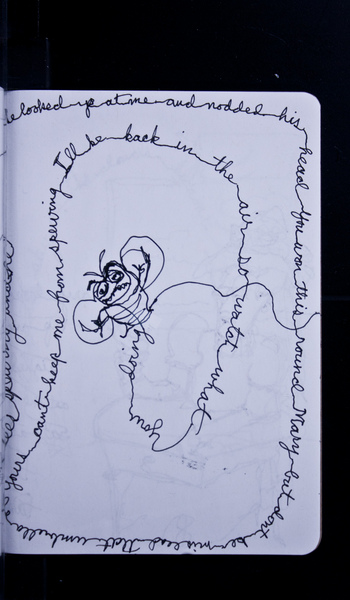 looked up at me and nodded his
head You won this round Mary but dont
be mislead That umbrella of
yours cant keep me from spewing
I'll be back in the
air so watch what
your doing